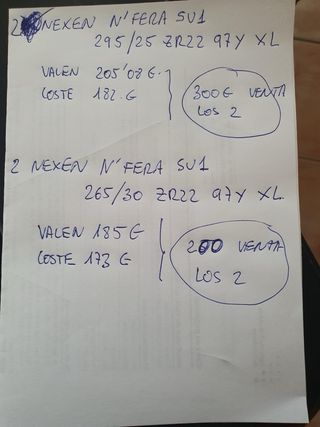 2 NEXEN N'FERA SU1
295/25 ZR22 97Y XL
VALEN 205'08 €.
COSTE 182.€
300€ VENTA
LOS 2
2 NEXEN N'FERA SU1
265/30 ZR22 97Y XL
VALEN 185 €
COSTE 173 €
200 VENTA
LOS 2